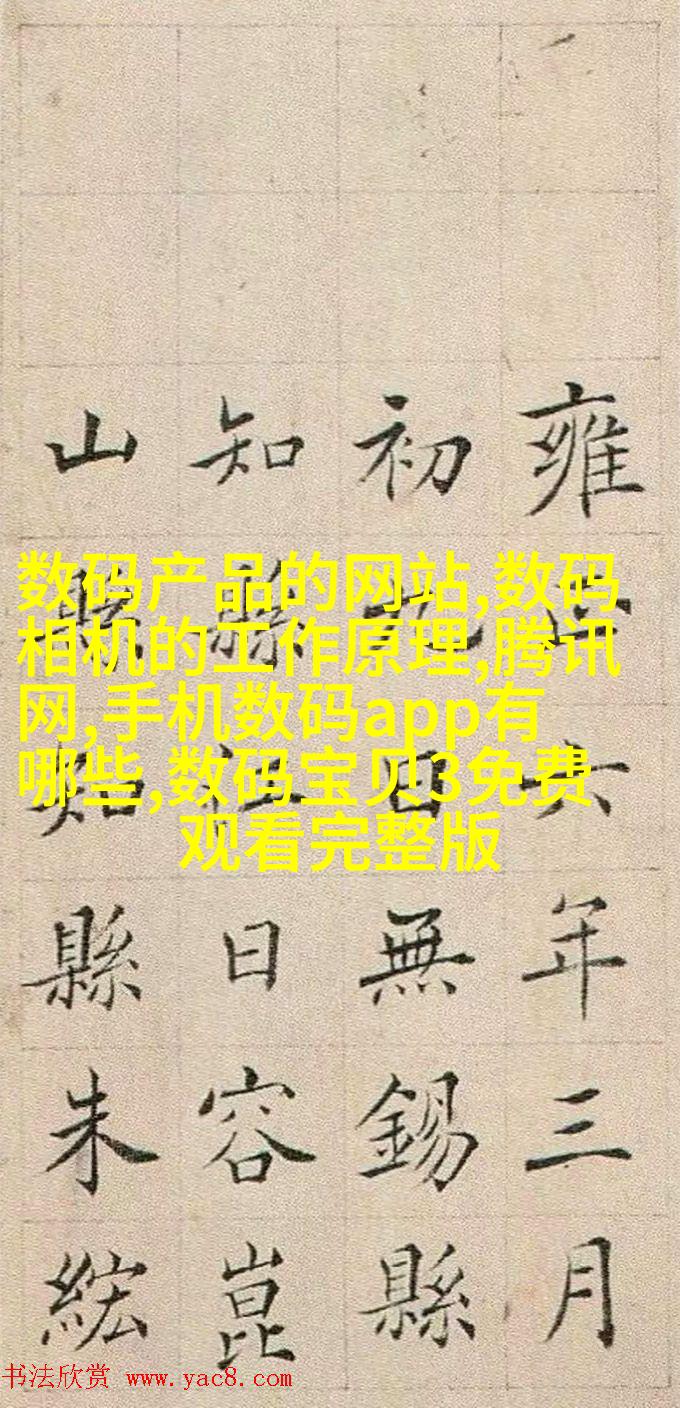 雍正六年三月
初九日無錫縣
知縣江日容崑
山縣知縣朱綋
数码产品的网站,数码
相机的工作原理,腾讯
网,手机数码app有
哪些,数码宝贝3免费
观看完整版
书法欣赏 www.yac8.com